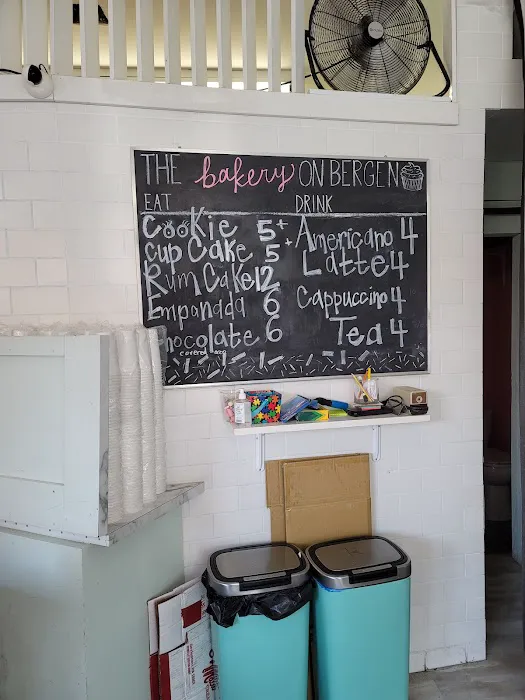 THE bakery ON BERGEN
EAT DRINK
Cookie 5+ Americano 4
Cup Cake 5+ Latte 4
Rum Cake 12
Empanada 6 Cappuccino 4
hocolate 6 Tea 4
covered